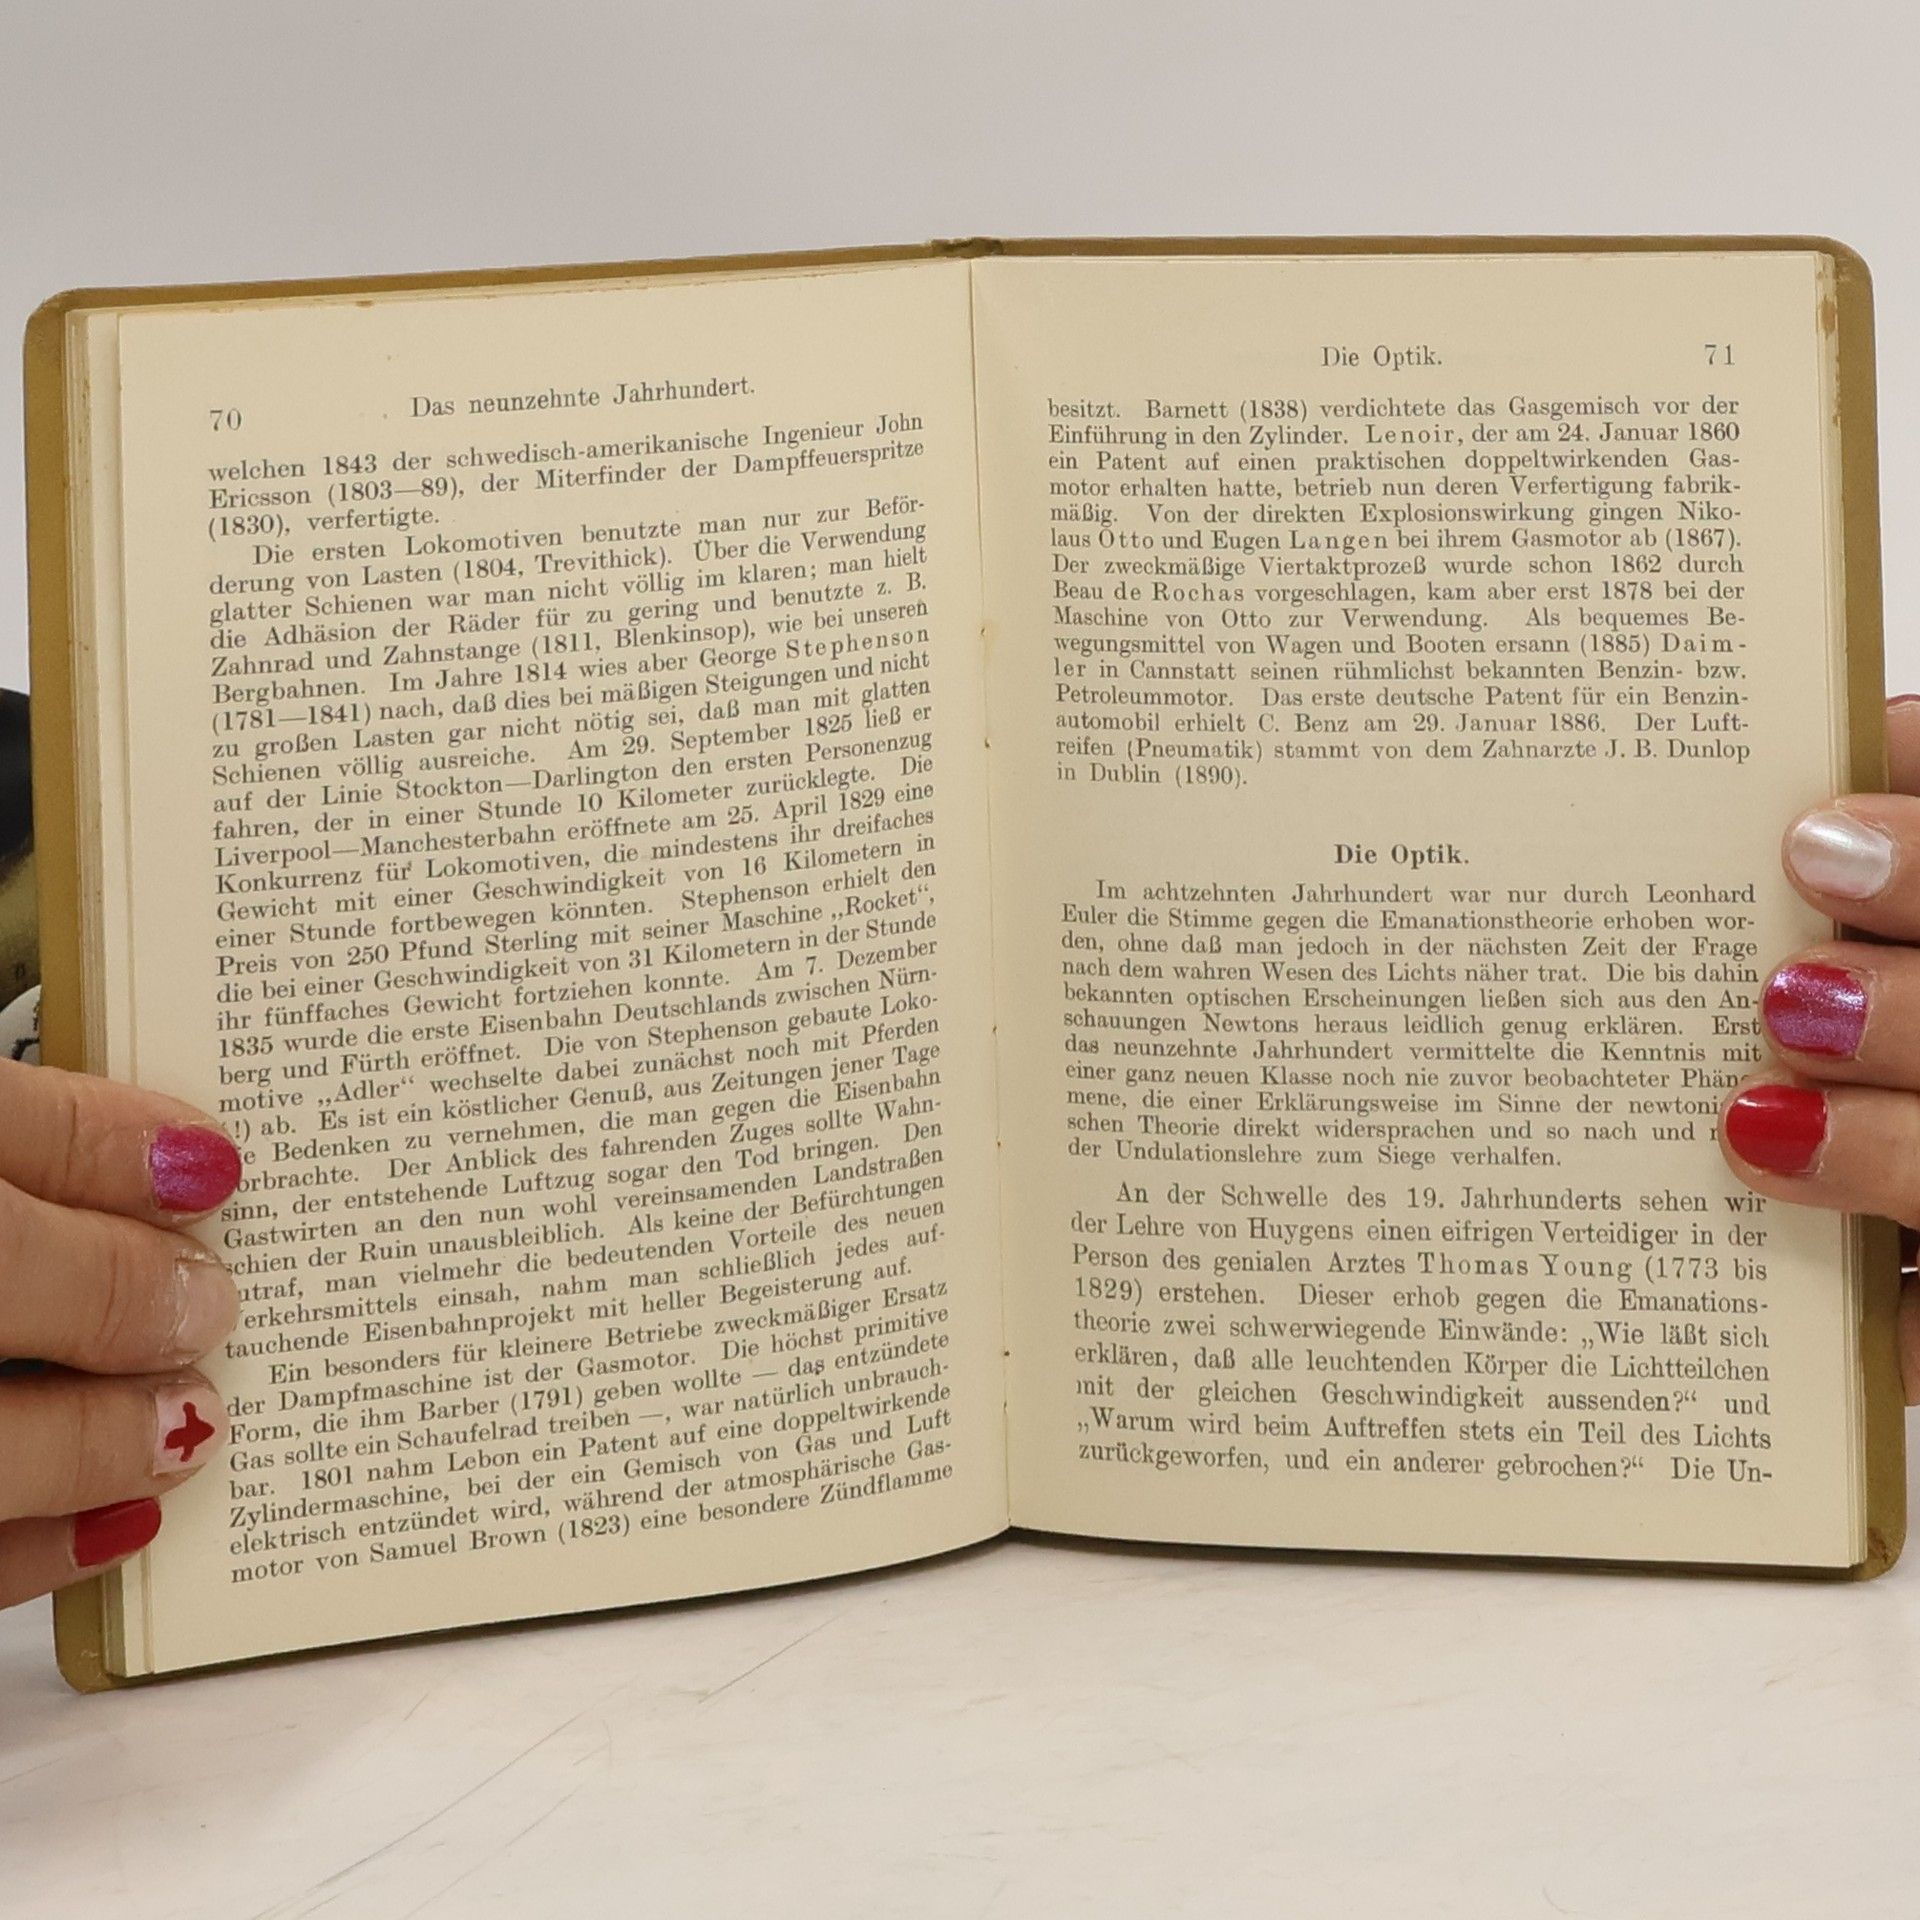 70
Das neunzehnte Jahrhundert.
welchen 1843 der schwedisch-amerikanische Ingenieur John
Ericsson (1803—89), der Miterfinder der Dampffeuerspritze
(1830), verfertigte.
Die ersten Lokomotiven benutzte man nur zur Beför-
derung von Lasten (1804, Trevithick). Über die Verwendung
glatter Schienen war man nicht völlig im klaren; man hielt
die Adhäsion der Räder für zu gering und benutzte z. B.
Zahnrad und Zahnstange (1811, Blenkinsop), wie bei unseren
Bergbahnen. Im Jahre 1814 wies aber George Stephenson
(1781—1841) nach, daß dies bei mäßigen Steigungen und nicht
zu großen Lasten gar nicht nötig sei, daß man mit glatten
Schienen völlig ausreiche. Am 29. September 1825 ließ er
auf der Linie Stockton—Darlington den ersten Personenzug
fahren, der in einer Stunde 10 Kilometer zurücklegte. Die
Liverpool—Manchesterbahn eröffnete am 25. April 1829 eine
Konkurrenz für Lokomotiven, die mindestens ihr dreifaches
Gewicht mit einer Geschwindigkeit von 16 Kilometern in
einer Stunde fortbewegen könnten. Stephenson erhielt den
Preis von 250 Pfund Sterling mit seiner Maschine „Rocket“,
die bei einer Geschwindigkeit von 31 Kilometern in der Stunde
ihr fünffaches Gewicht fortziehen konnte. Am 7. Dezember
1835 wurde die erste Eisenbahn Deutschlands zwischen Nürn-
berg und Fürth eröffnet. Die von Stephenson gebaute Loko-
motive „Adler“ wechselte dabei zunächst noch mit Pferden
!) ab. Es ist ein köstlicher Genuß, aus Zeitungen jener Tage
Bedenken zu vernehmen, die man gegen die Eisenbahn
orbrachte. Der Anblick des fahrenden Zuges sollte Wahn-
sinn, der entstehende Luftzug sogar den Tod bringen. Den
Gastwirten an den nun wohl vereinsamenden Landstraßen
schien der Ruin unausbleiblich. Als keine der Befürchtungen
utraf, man vielmehr die bedeutenden Vorteile des neuen
erkehrsmittels einsah, nahm man schließlich jedes auf-
tauchende Eisenbahnprojekt mit heller Begeisterung auf.
Ein besonders für kleinere Betriebe zweckmäßiger Ersatz
der Dampfmaschine ist der Gasmotor. Die höchst primitive
Form, die ihm Barber (1791) geben wollte — das entzündete
Gas sollte ein Schaufelrad treiben —, war natürlich unbrauch-
bar. 1801 nahm Lebon ein Patent auf eine doppeltwirkende
Zylindermaschine, bei der ein Gemisch von Gas und Luft
elektrisch entzündet wird, während der atmosphärische Gas-
motor von Samuel Brown (1823) eine besondere Zündflamme
Die Optik.
71
besitzt. Barnett (1838) verdichtete das Gasgemisch vor der
Einführung in den Zylinder. Lenoir, der am 24. Januar 1860
ein Patent auf einen praktischen doppeltwirkenden Gas-
motor erhalten hatte, betrieb nun deren Verfertigung fabrik-
mäßig. Von der direkten Explosionswirkung gingen Niko-
laus Otto und Eugen Langen bei ihrem Gasmotor ab (1867).
Der zweckmäßige Viertaktprozeß wurde schon 1862 durch
Beau de Rochas vorgeschlagen, kam aber erst 1878 bei der
Maschine von Otto zur Verwendung. Als bequemes Be-
wegungsmittel von Wagen und Booten ersann (1885) Daim-
ler in Cannstatt seinen rühmlichst bekannten Benzin- bzw.
Petroleummotor. Das erste deutsche Patent für ein Benzin-
automobil erhielt C. Benz am 29. Januar 1886. Der Luft-
reifen (Pneumatik) stammt von dem Zahnarzte J. B. Dunlop
in Dublin (1890).
Die Optik.
Im achtzehnten Jahrhundert war nur durch Leonhard
Euler die Stimme gegen die Emanationstheorie erhoben wor-
den, ohne daß man jedoch in der nächsten Zeit der Frage
nach dem wahren Wesen des Lichts näher trat. Die bis dahin
bekannten optischen Erscheinungen ließen sich aus den An-
schauungen Newtons heraus leidlich genug erklären. Erst
das neunzehnte Jahrhundert vermittelte die Kenntnis mit
einer ganz neuen Klasse noch nie zuvor beobachteter Phän
mene, die einer Erklärungsweise im Sinne der newtoni
schen Theorie direkt widersprachen und so nach und
der Undulationslehre zum Siege verhalfen.
An der Schwelle des 19. Jahrhunderts sehen wir
der Lehre von Huygens einen eifrigen Verteidiger in der
Person des genialen Arztes Thomas Young (1773 bis
1829) erstehen. Dieser erhob gegen die Emanations-
theorie zwei schwerwiegende Einwände: „Wie läßt sich
erklären, daß alle leuchtenden Körper die Lichtteilchen
mit der gleichen Geschwindigkeit aussenden?“ und
„Warum wird beim Auftreffen stets ein Teil des Lichts
zurückgeworfen, und ein anderer gebrochen?“ Die Un-